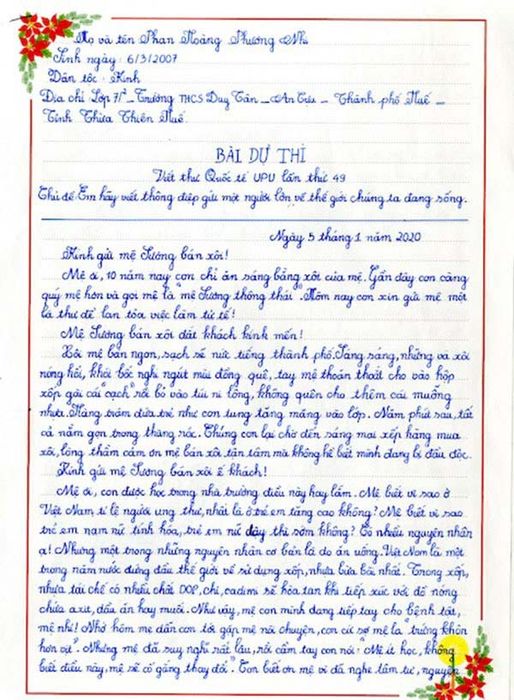 Họ và tên Phan Hoàng Phương Nhi
Sinh ngày: 6/3/2007
Dân tộc: Kinh
Địa chỉ Lớp 7/² - Trường THCS Duy Tân - An Cựu - Thành phố Huế -
Tỉnh Thừa Thiên Huế.
BÀI DỰ THI
Viết thư Quốc tế UPU lần thứ 49
Chủ đề: Em hãy viết thông điệp gửi một người lớn về thế giới chúng ta đang sống.
Ngày 5 tháng 1 năm 2020
Kính gửi mệ Sương bán xôi!
Mệ ơi, 10 năm nay con chỉ ăn sáng bằng xôi của mệ. Gần đây con càng
quý mệ hơn và gọi mệ là "mệ Sương thông thái". Hôm nay con xin gửi mệ một
lá thư để lan tỏa việc làm tử tế!
Mệ Sương bán xôi đắt khách kính mến!
Xôi mệ bán ngon, sạch sẽ nức tiếng thành phố. Sáng sáng, những vá xôi
nóng hổi, khói bốc nghi ngút mùi đồng quê, tay mệ thoăn thoắt cho vào hộp
xốp gài cái "cạch" rồi bỏ vào túi ni lông, không quên cho thêm cái muỗng
nhựa. Hàng trăm đứa trẻ như con tung tăng mang vào lớp. Năm phút sau, tất
cả nằm gọn trong thùng rác. Chúng con lại chờ đến sáng mai xếp hàng mua
xôi, lòng thầm cảm ơn mệ bán xôi tận tâm mà không hề biết mình đang bị đầu độc.
Kính gửi mệ Sương bán xôi ế khách!
Mệ ơi, con được học trong nhà trường điều này hay lắm. Mệ biết vì sao ở
Việt Nam tỉ lệ người ung thư, nhất là ở trẻ em tăng cao không? Mệ biết vì sao
trẻ em nam nữ tính hóa, trẻ em nữ dậy thì sớm không? Có nhiều nguyên nhân
ạ! Nhưng một trong những nguyên nhân cơ bản là do ăn uống. Việt Nam là một
trong năm nước đứng đầu thế giới về sử dụng xốp, nhựa bừa bãi nhất. Trong xốp,
nhựa tái chế có nhiều chất DOP, chì, cadimi sẽ hòa tan khi tiếp xúc với đồ nóng
chứa axit, dầu ăn hay muối. Như vậy, mệ con mình đang tiếp tay cho bệnh tật,
mệ nhỉ! Nhớ hôm mẹ dẫn con tới gặp mệ nói chuyện, con cứ sợ mệ la "trứng khôn
hơn vịt". Nhưng mệ đã suy nghĩ rất lâu, rồi cầm tay con nói: "Mệ ít học, không
biết điều này, mệ sẽ cố gắng thay đổi". Con biết ơn mệ vì đã nghe tâm tư, nguyện